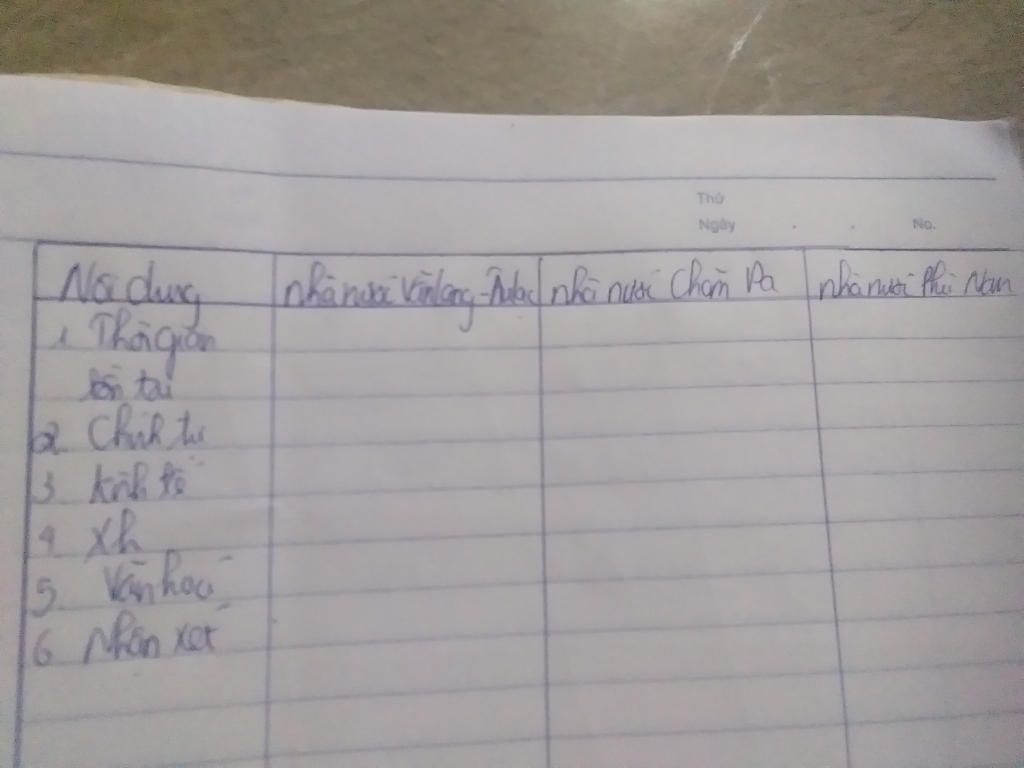 Thứ
Ngày . . No.
Nội dung nhà nước Văn Lang - Âu Lạc nhà nước Chăm Pa nhà nước Phù Nam
1 Thời gian
tồn tại
2. Chính trị
3 kinh tế
4 Xh
5. Văn hoá
6 Nhận xét